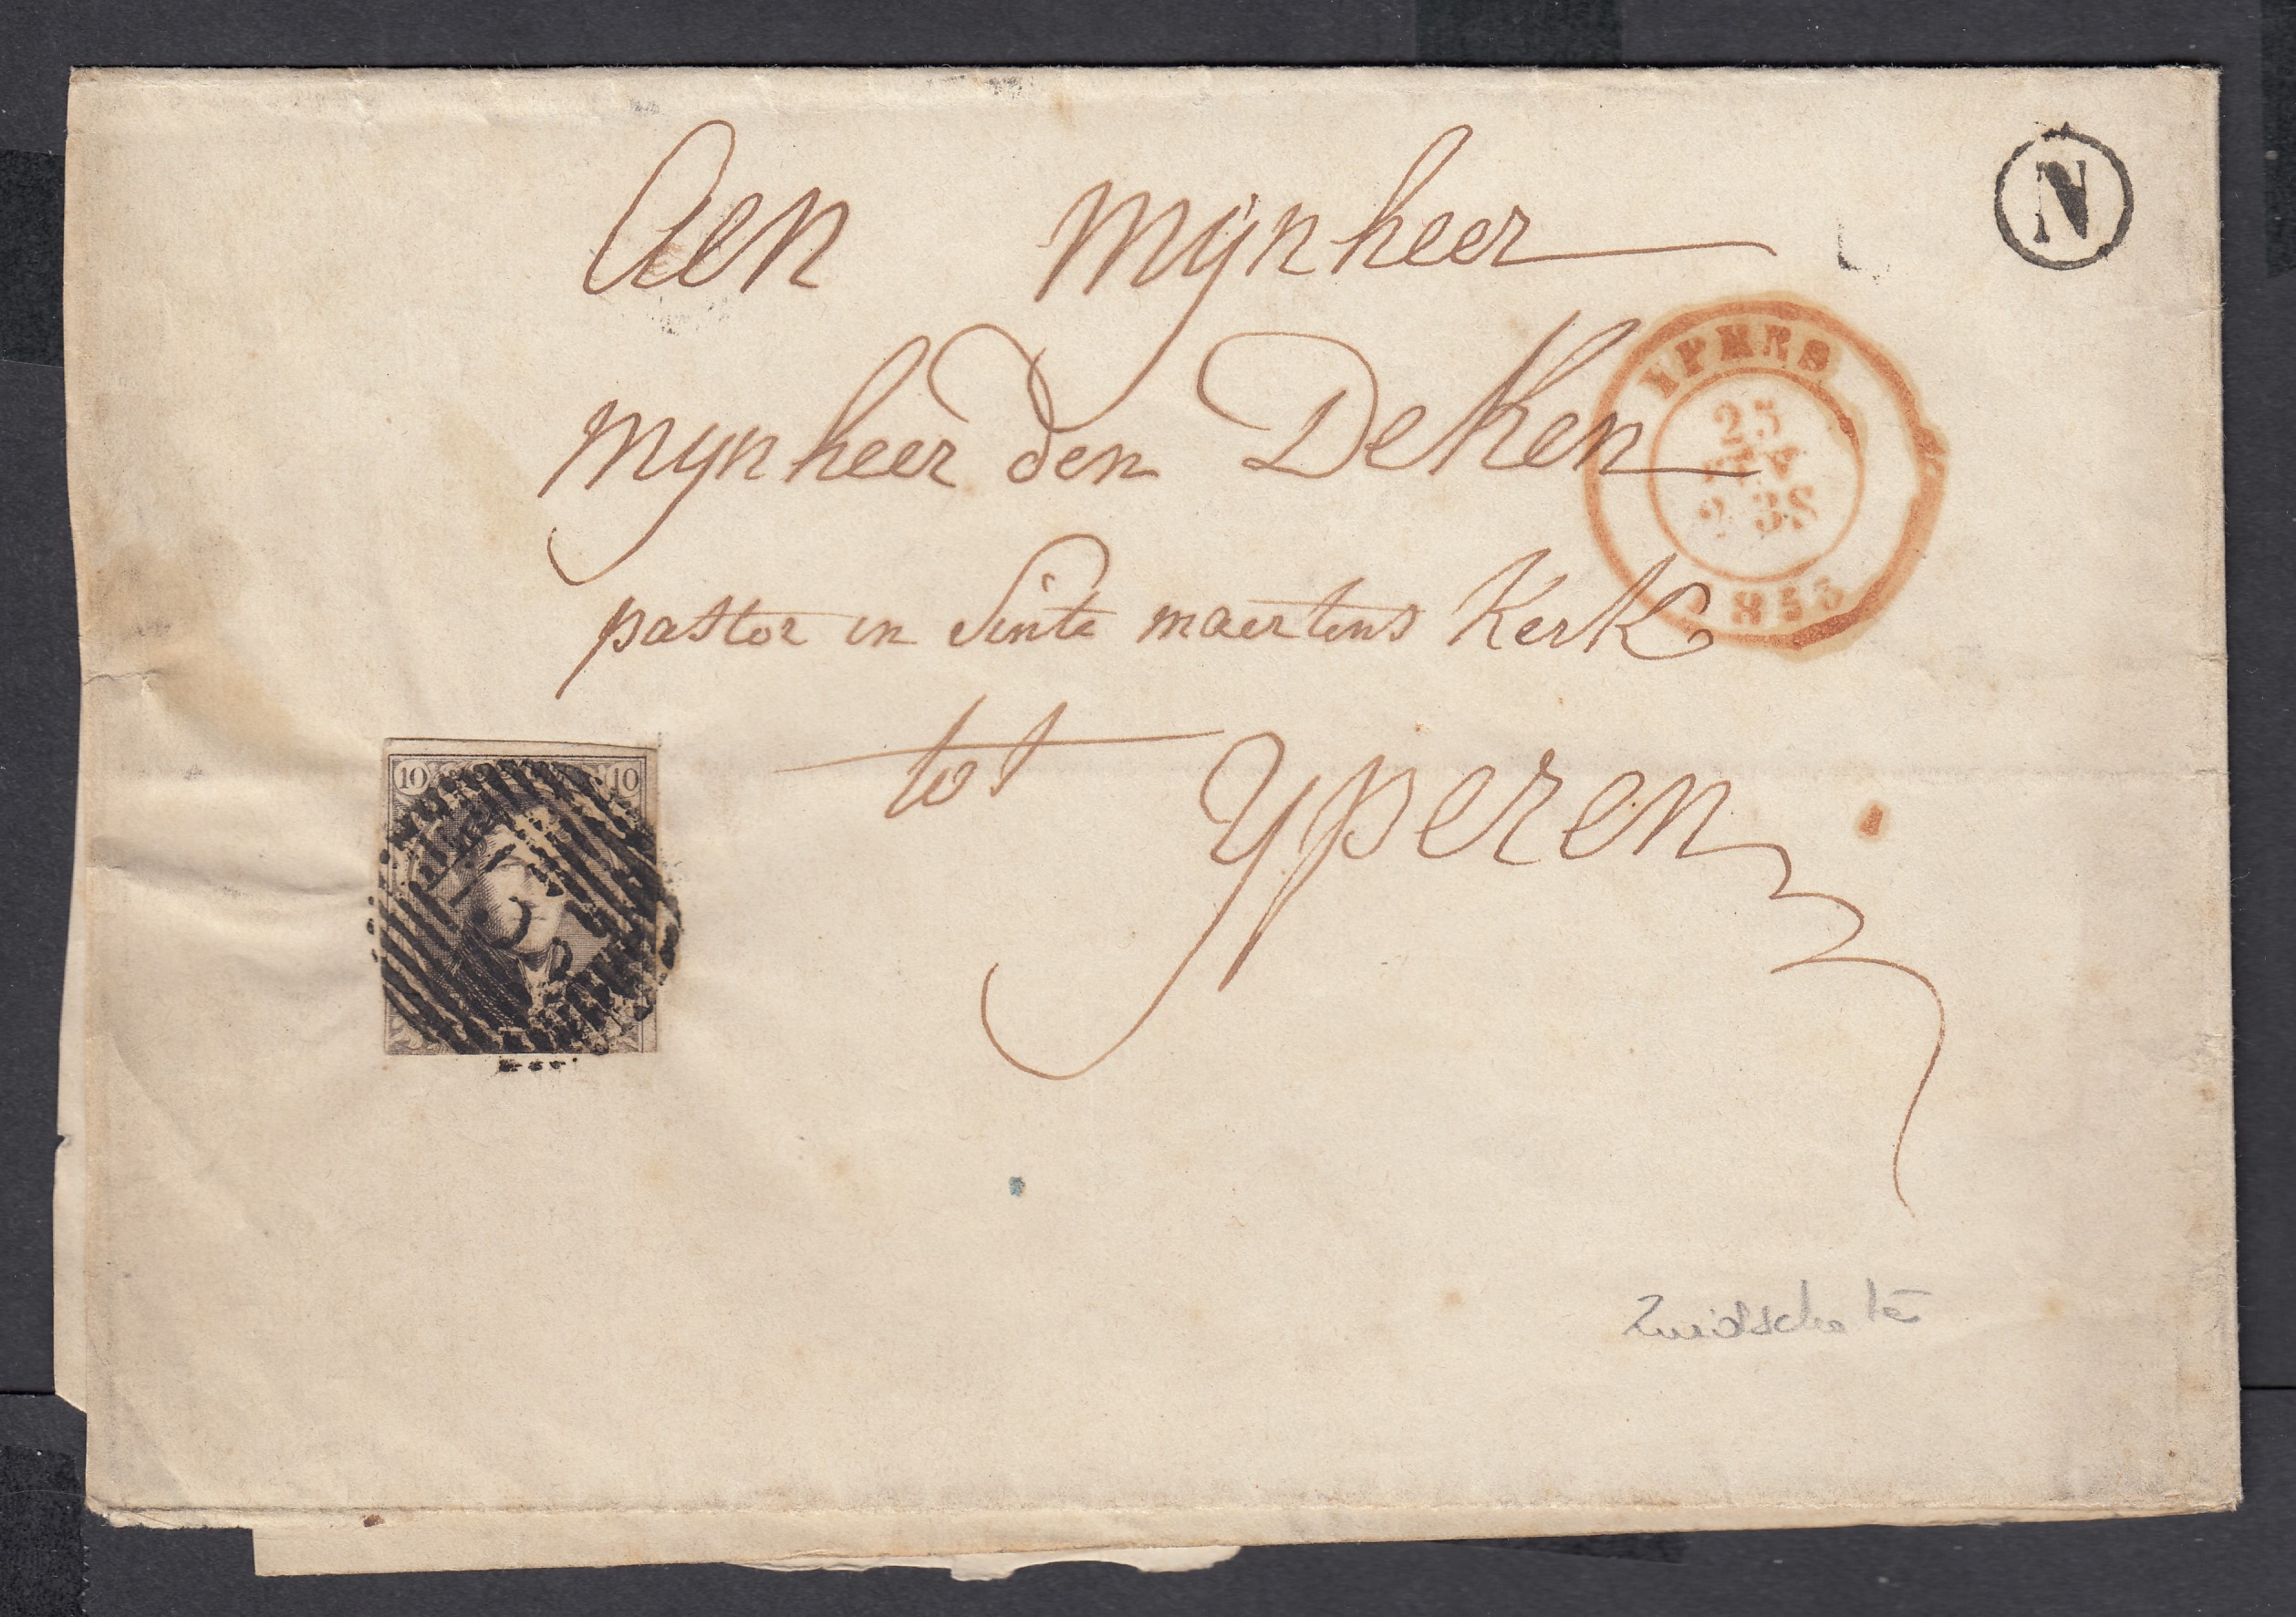 Aen Mynheer
N
mynheer den Deken
YPRES
25
2 3S
1853
pastor in Sinte maertens Kerk
tot Yperen
10 10
Zuidschote